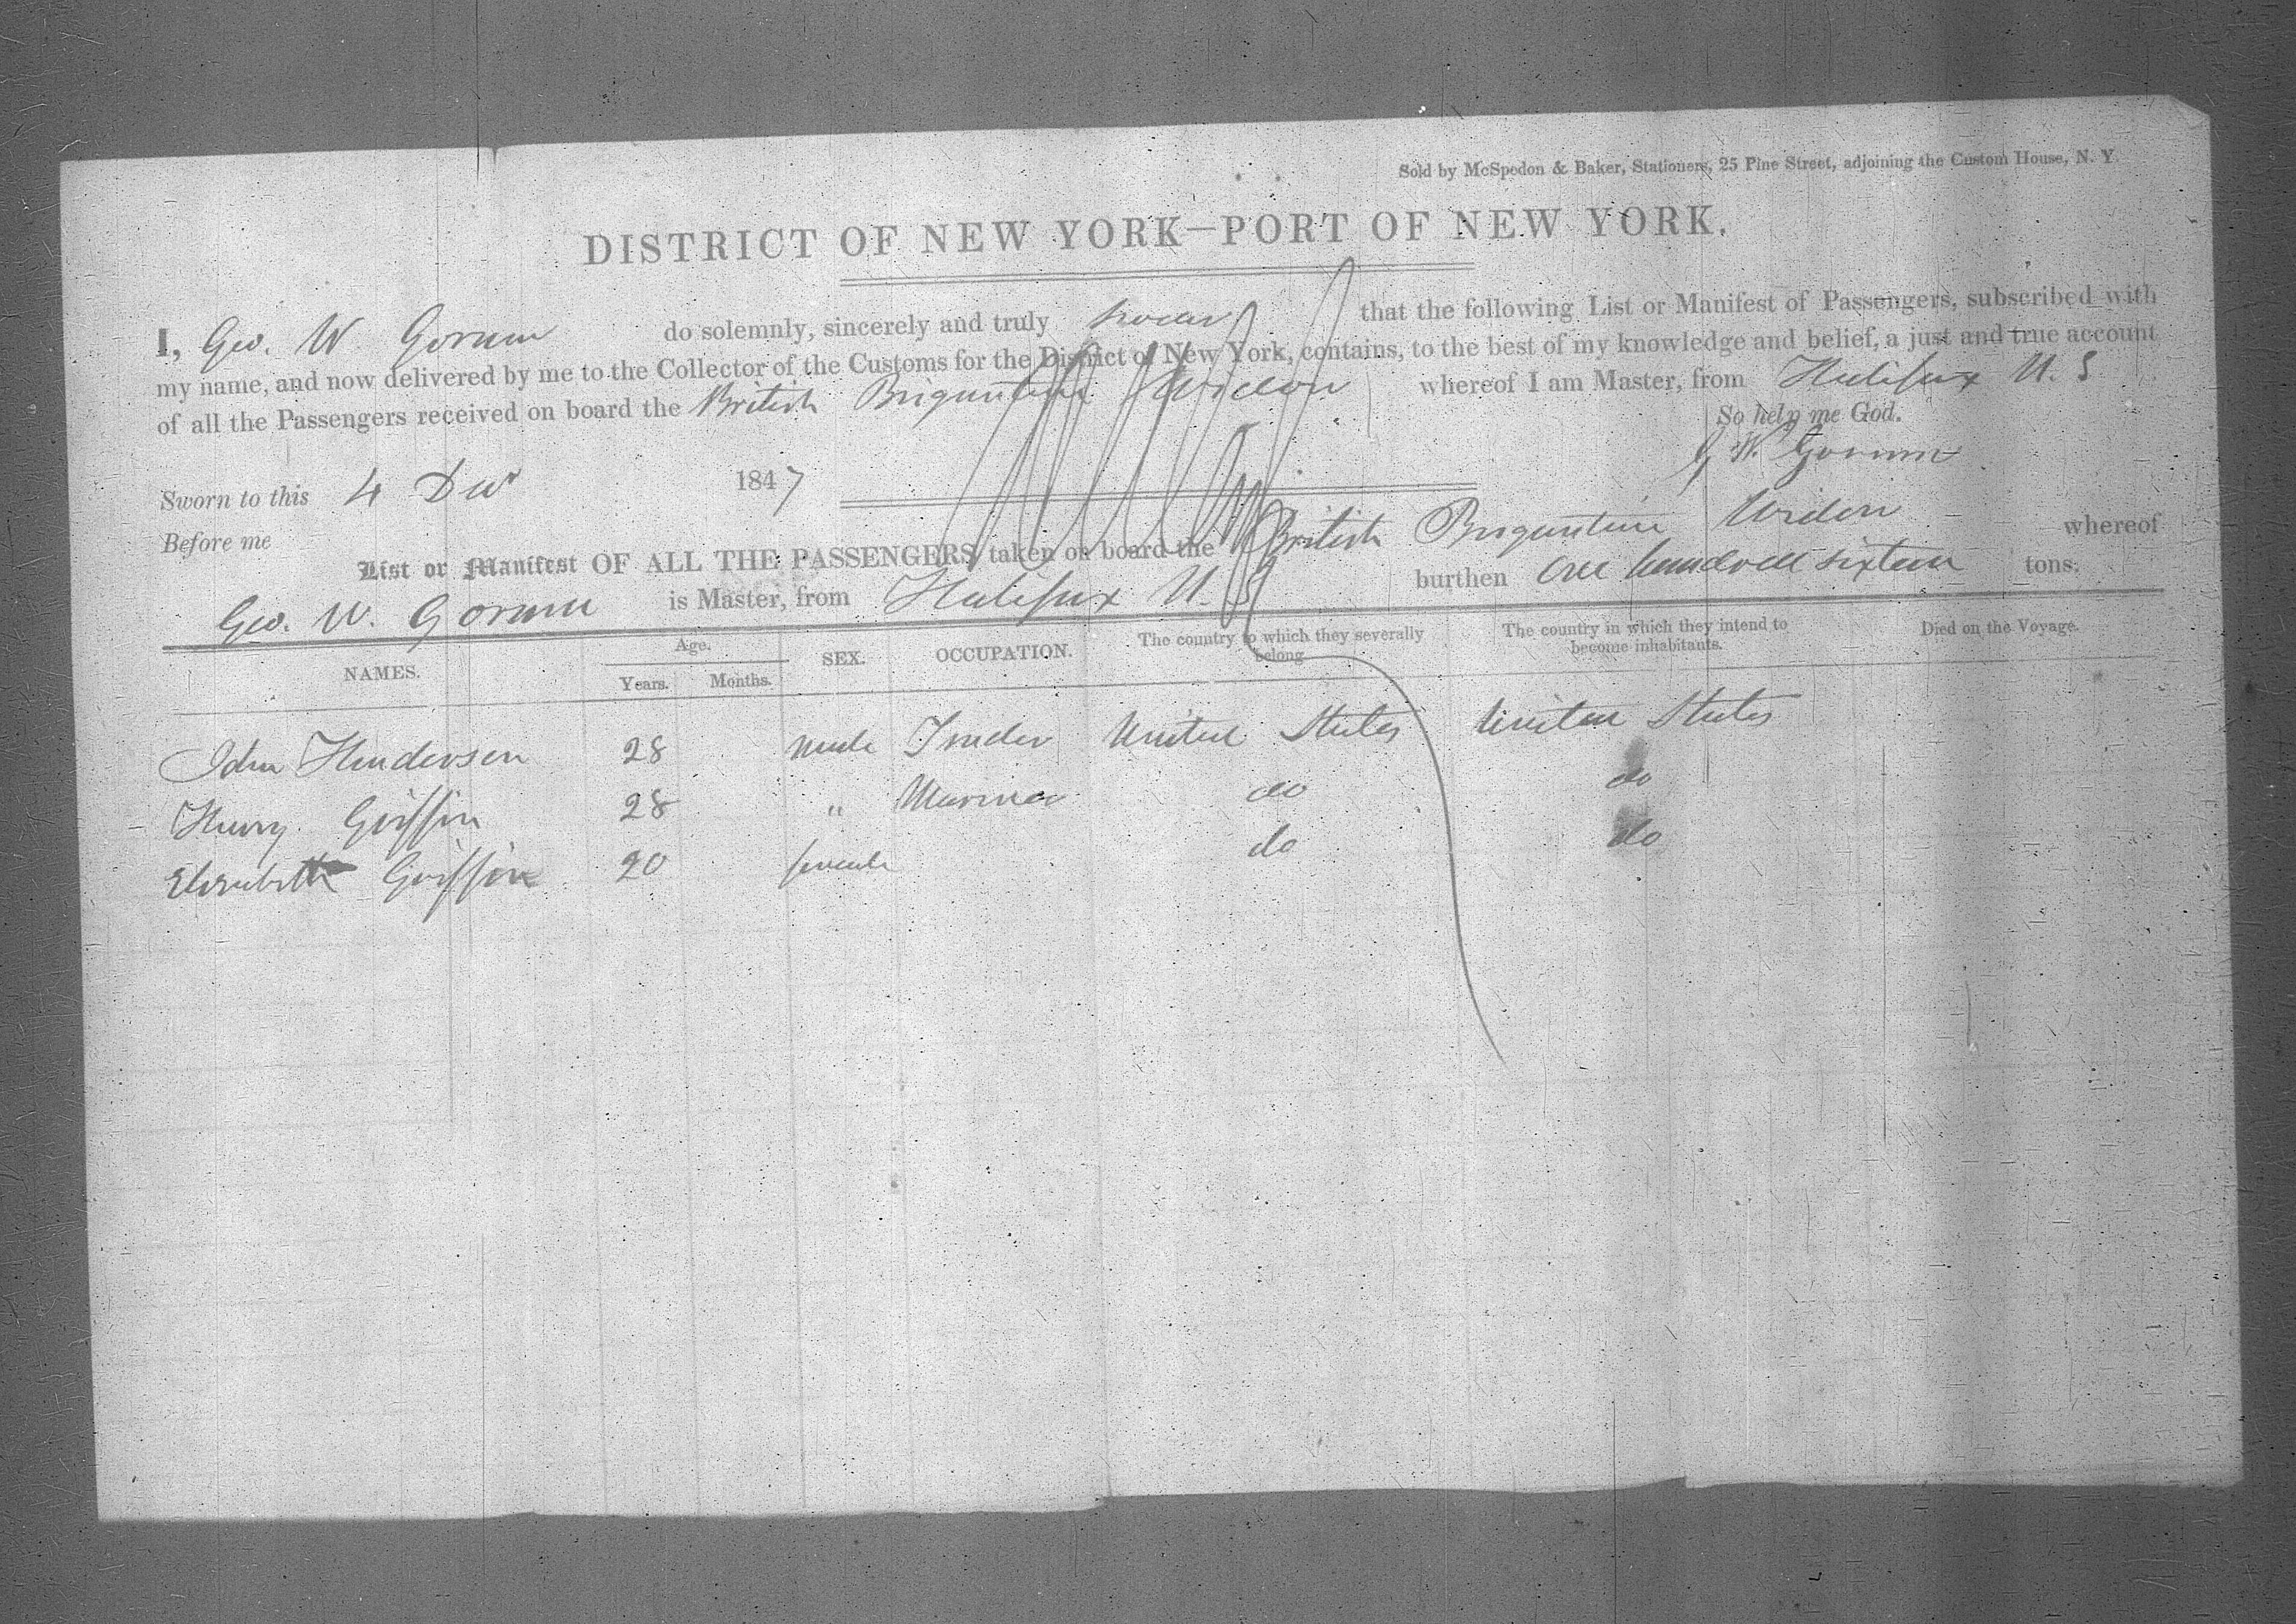 Sold by McSpedon & Baker, Stationers, 25 Pine Street, adjoining the Custom House, N. Y.
DISTRICT OF NEW YORK—PORT OF NEW YORK.
I, Geo. W Gorum do solemnly, sincerely and truly swear that the following List or Manifest of Passengers, subscribed with
my name, and now delivered by me to the Collector of the Customs for the District of New York, contains, to the best of my knowledge and belief, a just and true account
of all the Passengers received on board the British Brigantine whereof I am Master, from Halifax N. S
So help me God.
G W. Gorum
Sworn to this 4 Dec 1847
Before me
List or Manifest OF ALL THE PASSENGERS taken on board the British Brigantine whereof
Geo. W. Gorum is Master, from Halifax N. S burthen One hundred sixteen tons.
NAMES. Age. Years. Months. SEX. OCCUPATION. The country to which they severally belong The country in which they intend to become inhabitants. Died on the Voyage.
John Henderson 28 male Trader United States United States
Henry Griffin 28 " Mariner do do
Elizabeth Griffin 20 female do do